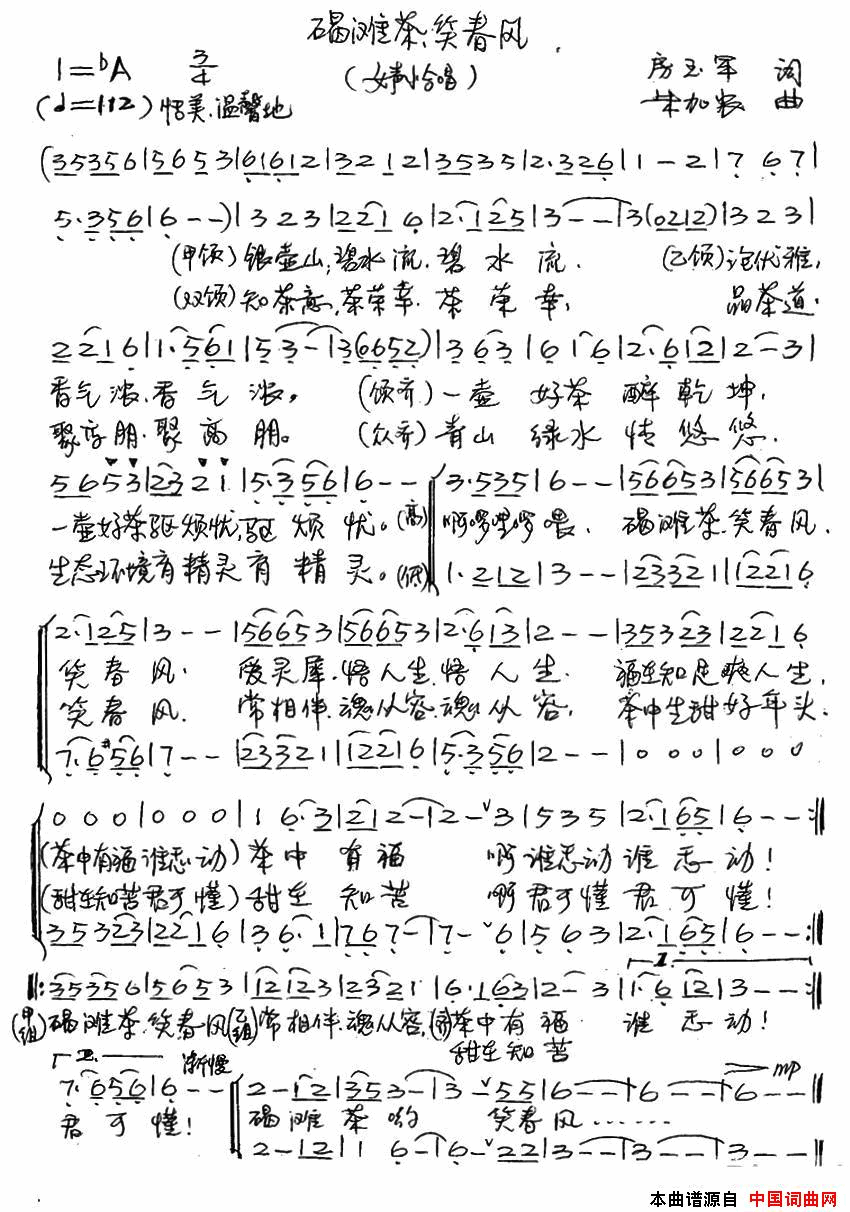 碣滩茶，笑春风
1=♭A 3/4 （女声小合唱） 房玉军 词
(d=112) 恬美、温馨地 朱加农 曲
(35356|5653|6161 2|32 1 2|3535|2·326|1-2|7 6 7|
5·356|6--)|3 2 3|221 6|2·125|3--|3(0212)|3 2 3|
(甲领)银壶山，碧水流，碧水流． (乙领)沱优雅，
(双领)知茶意，茶荣幸，茶荣幸， 品茶道，
221 6|1·561|5 3-|3(6652)|3 6 3|6 1 6|2·612|2-3|
香气浓，香气浓。 (领齐)一壶好茶醉乾坤，
聚高朋，聚高朋。 (众齐)青山绿水情悠悠．
5653|23 2 1|5·356|6--|3·535|6--|56653|56653|
一壶好茶驱烦忧，驱烦忧。(高)啊啰哩啰喂． 碣滩茶，笑春风．
生态环境育精灵育精灵。(低)
1·212|3--|23321|1221 6
2·125|3--|56653|56653|2·613|2--|353 23|221 6
笑春风． 爱灵犀，悟人生，悟人生． 福在知足爽人生，
笑春风． 常相伴，魂从容，魂从容， 茶中生甜好年头．
7·6#56|7--|23321|1221 6|5·356|2--|0 0 0|0 0 0
0 0 0|0 0 0|1 6·3|212-|2-∨3|5 3 5|2·165|6--:‖
(茶中有福谁感动)茶中有福 啊谁感动谁感动！
(甜在知苦君可懂)甜在知苦 啊君可懂君可懂！
353 23|221 6|3 6·1|767-|7-∨6|5 6 3|2·165|6--:‖
1.
‖:35356|5653|12123|2321|6·163|2-3|1·612|3--:‖
(甲组)碣滩茶，笑春风(乙组)常相伴，魂从容，(齐)茶中有福 谁感动！
甜在知苦
2. 渐慢 mp
7·656|6--|2-12|353-|3-∨55|6--|6--|6--‖
君可懂！ 碣滩茶哟 笑春风……
2-12|1 6-|6-∨22|3--|3--|3--‖
本曲谱源自 中国词曲网